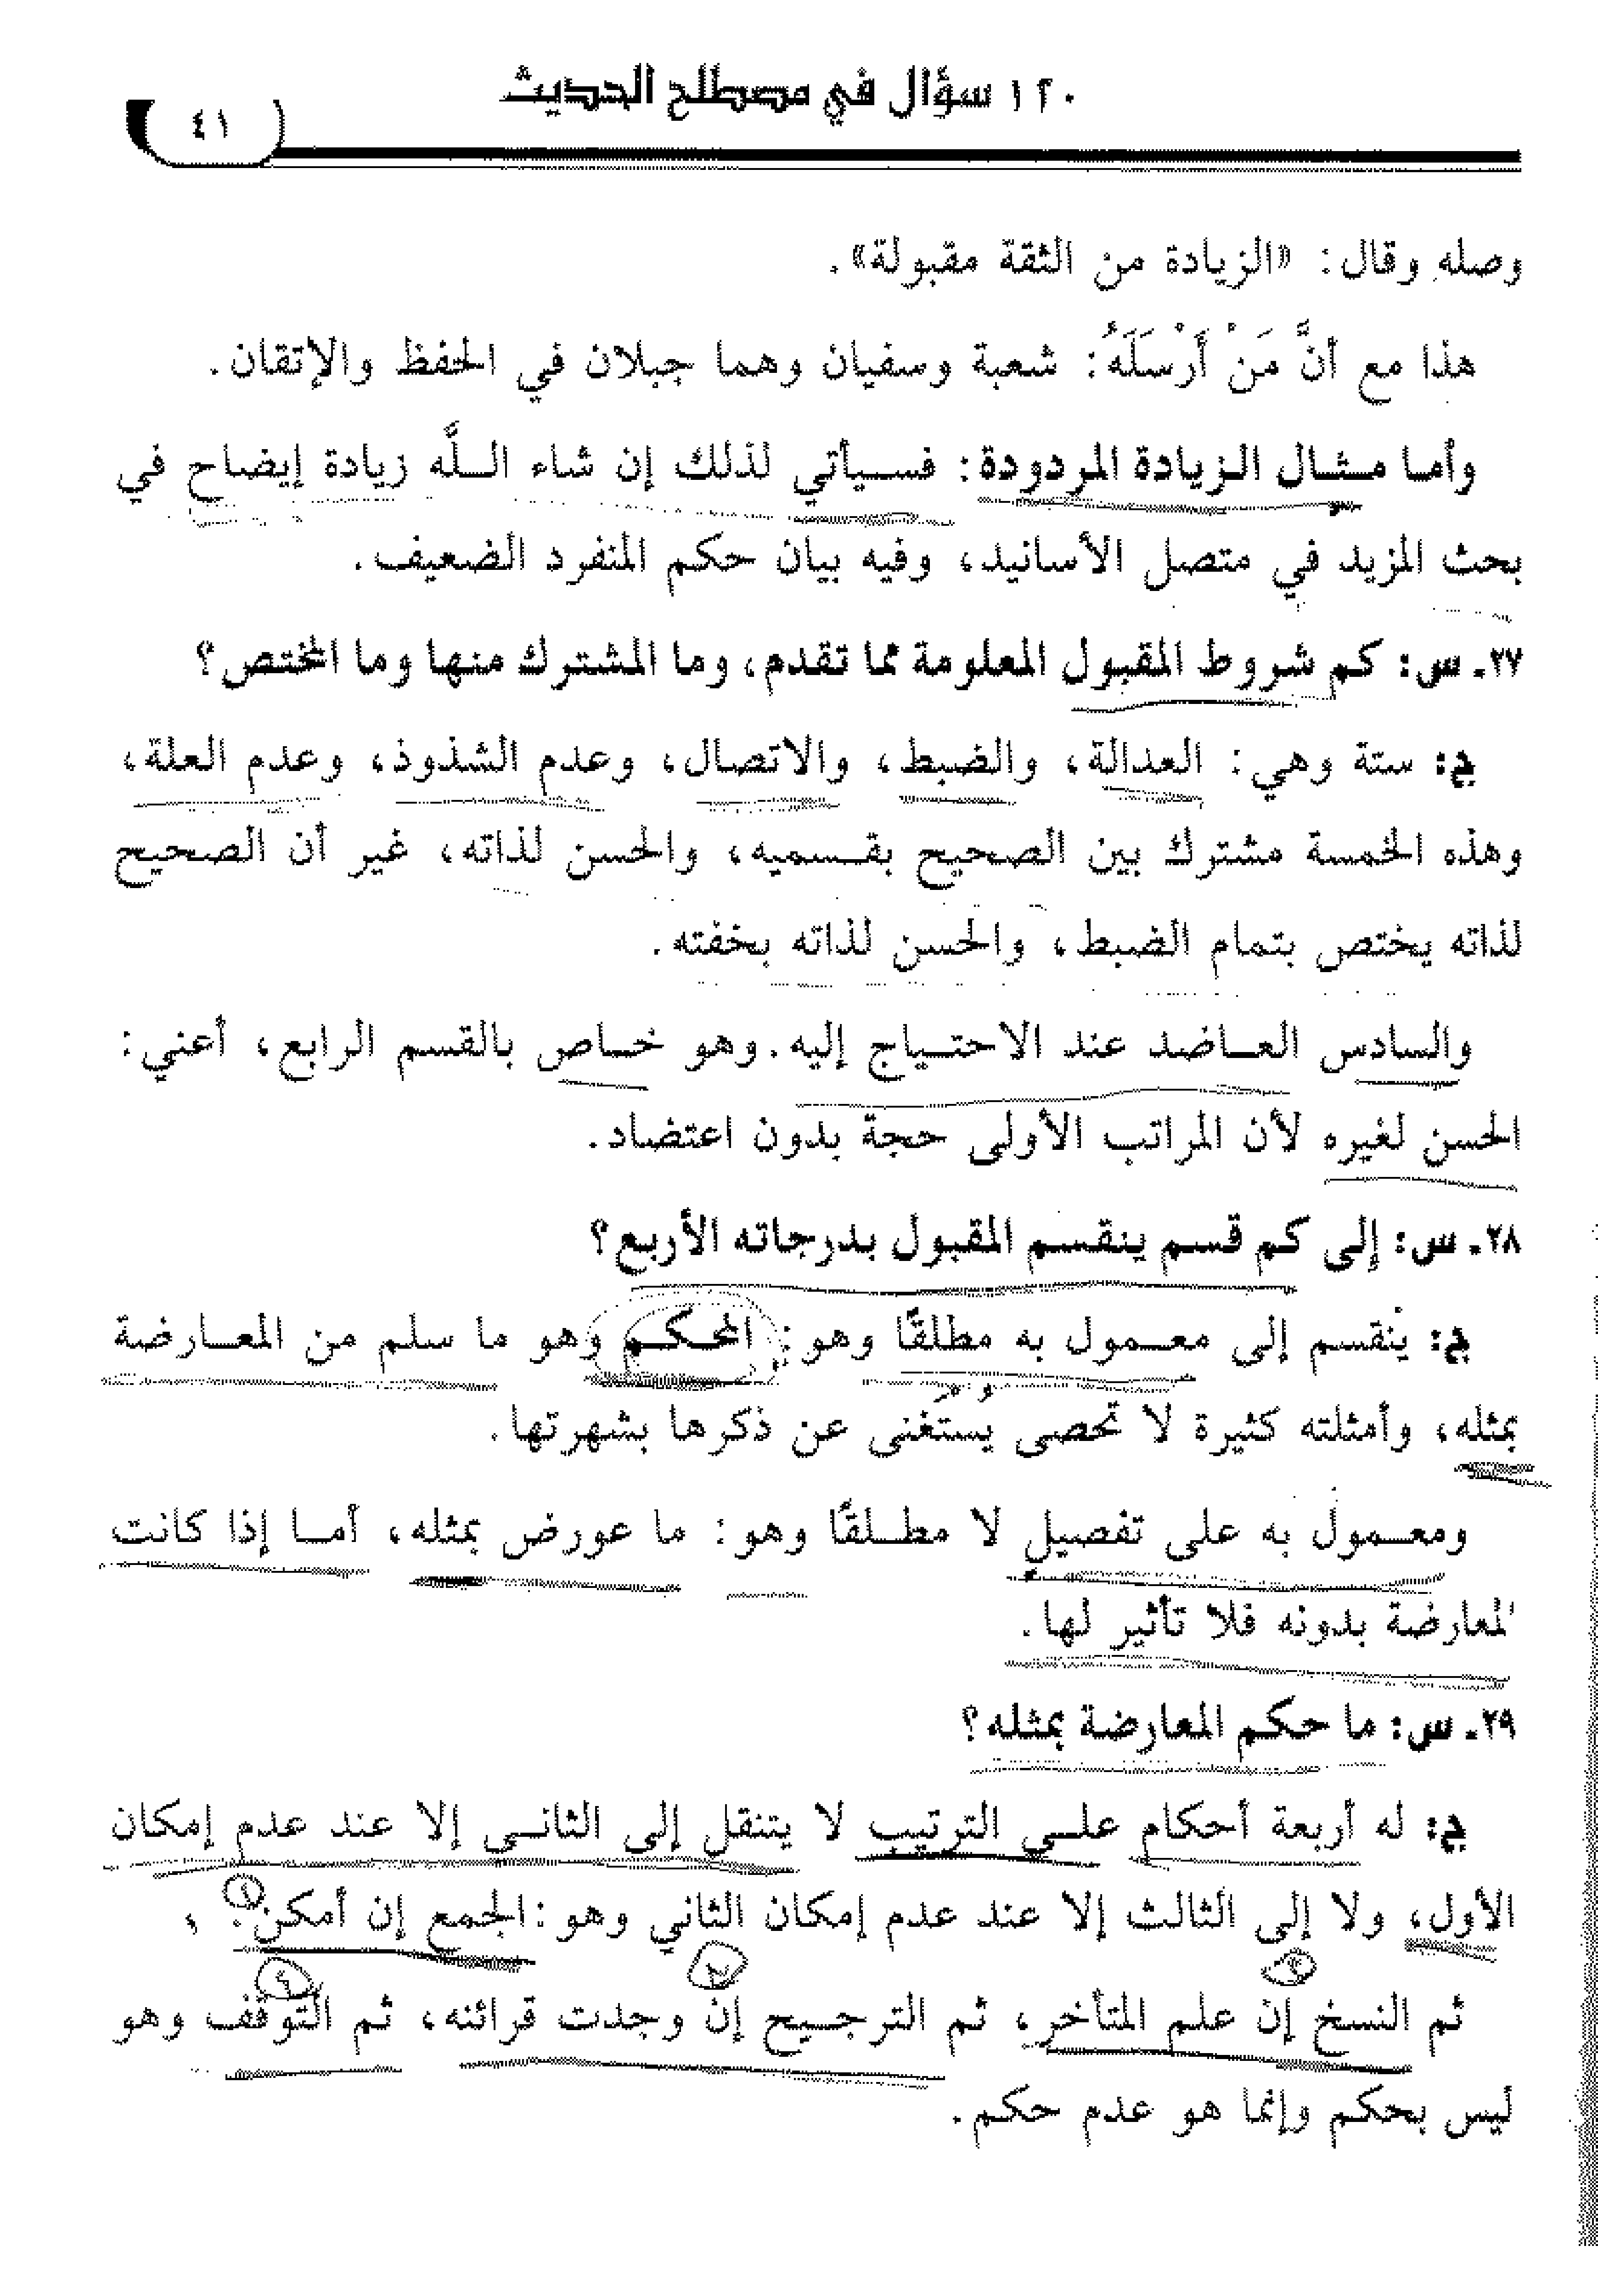 ١٢٠ سؤال في مصطلح الحديث
٤١
وصله وقال: «الزيادة من الثقة مقبولة».
هذا مع أنَّ مَنْ أَرْسَلَهُ: شعبة وسفيان وهما جبلان في الحفظ والإتقان.
وأما مثال الزيادة المردودة: فسيأتي لذلك إن شاء اللَّه زيادة إيضاح في
بحث المزيد في متصل الأسانيد، وفيه بيان حكم المنفرد الضعيف.
٢٧ـ س: كم شروط المقبول المعلومة مما تقدم، وما المشترك منها وما المختص؟
ج: ستة وهي: العدالة، والضبط، والاتصال، وعدم الشذوذ، وعدم العلة،
وهذه الخمسة مشترك بين الصحيح بقسميه، والحسن لذاته، غير أن الصحيح
لذاته يختص بتمام الضبط، والحسن لذاته بخفته.
والسادس العاضد عند الاحتياج إليه. وهو خاص بالقسم الرابع، أعني:
الحسن لغيره لأن المراتب الأولى حجة بدون اعتضاد.
٢٨ـ س: إلى كم قسم ينقسم المقبول بدرجاته الأربع؟
ج: ينقسم إلى معمول به مطلقًا وهو: المحكم وهو ما سلم من المعارضة
بمثله، وأمثلته كثيرة لا تحصى يستغنى عن ذكرها بشهرتها.
ومعمول به على تفصيلٍ لا مطلقًا وهو: ما عورض بمثله، أما إذا كانت
المعارضة بدونه فلا تأثير لها.
٢٩ـ س: ما حكم المعارضة بمثله؟
ج: له أربعة أحكام على الترتيب لا يتنقل إلى الثاني إلا عند عدم إمكان
الأول، ولا إلى الثالث إلا عند عدم إمكان الثاني وهو: الجمع إن أمكن. ١ ،
ثم النسخ إن علم المتأخر، ثم الترجيح إن وجدت قرائنه، ثم التوقف وهو
ليس بحكم وإنما هو عدم حكم.